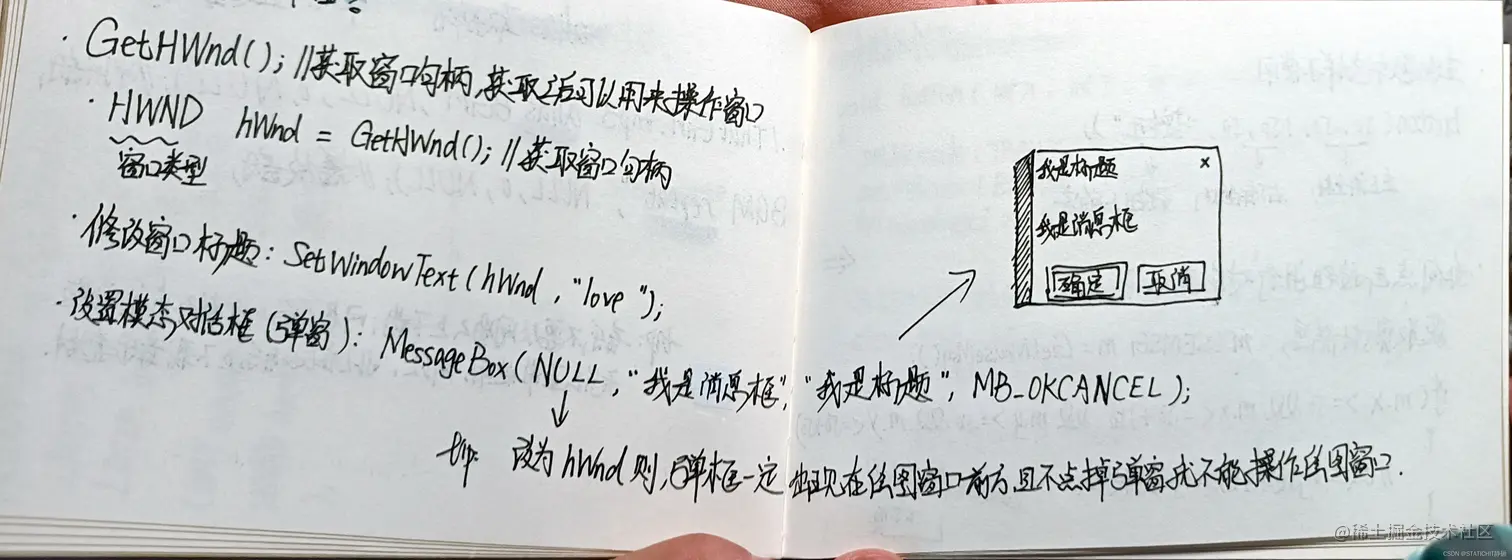 · GetHWnd(); //获取窗口句柄,获取之后可以用来操作窗口
· HWND hWnd = GetHWnd(); //获取窗口句柄
窗口类型
· 修改窗口标题: SetWindowText(hWnd, "love");
· 设置模态对话框(弹窗): MessageBox(NULL, "我是消息框", "我是标题", MB_OKCANCEL);
tip: 改为hWnd则,弹框一定出现在绘图窗口前方,且不点掉弹窗就不能操作绘图窗口.
我是标题 x
我是消息框
确定 取消
@稀土掘金技术社区